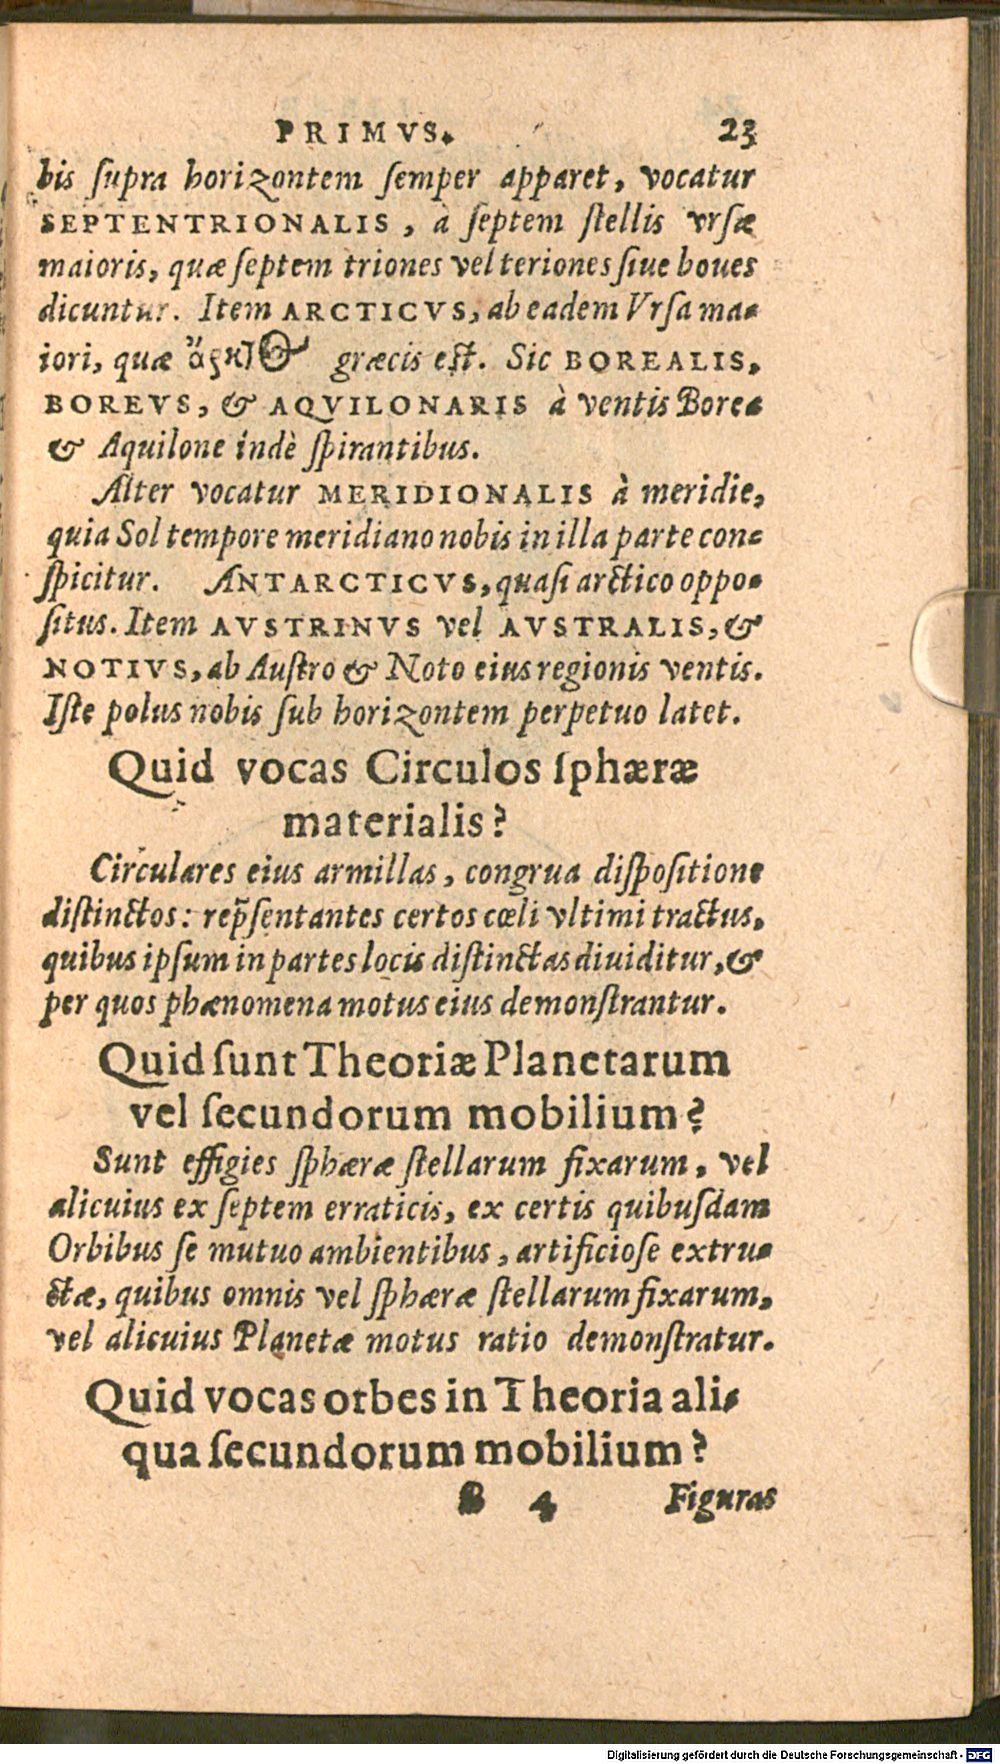 PRIMVS. 23
bis ſupra horizontem ſemper apparet, vocatur
SEPTENTRIONALIS, à ſeptem ſtellis vrſæ
maioris, quæ ſeptem triones vel teriones ſiue boues
dicuntur. Item ARCTICVS, ab eadem Vrſa ma-
iori, quæ ἄρκτος græcis eſt. Sic BOREALIS,
BOREVS, & AQVILONARIS à ventis Borea
& Aquilone indè ſpirantibus.
Alter vocatur MERIDIONALIS à meridie,
quia Sol tempore meridiano nobis in illa parte con-
ſpicitur. ANTARCTICVS, quaſi arctico oppo-
ſitus. Item AVSTRINVS vel AVSTRALIS, &
NOTIVS, ab Auſtro & Noto eius regionis ventis.
Iſte polus nobis ſub horizontem perpetuo latet.
Quid vocas Circulos ſphæræ
materialis?
Circulares eius armillas, congrua diſpoſitione
diſtinctos: rep̃ſentantes certos cœli vltimi tractus,
quibus ipſum in partes locis diſtinctas diuiditur, &
per quos phænomena motus eius demonſtrantur.
Quid ſunt Theoriæ Planetarum
vel ſecundorum mobilium?
Sunt effigies ſphæræ ſtellarum fixarum, vel
alicuius ex ſeptem erraticis, ex certis quibuſdam
Orbibus ſe mutuo ambientibus, artificioſe extru-
ctæ, quibus omnis vel ſphæræ ſtellarum fixarum,
vel alicuius Planetæ motus ratio demonſtratur.
Quid vocas orbes in Theoria ali-
qua ſecundorum mobilium?
B 4 Figuras
Digitalisierung gefördert durch die Deutsche Forschungsgemeinschaft - DFG